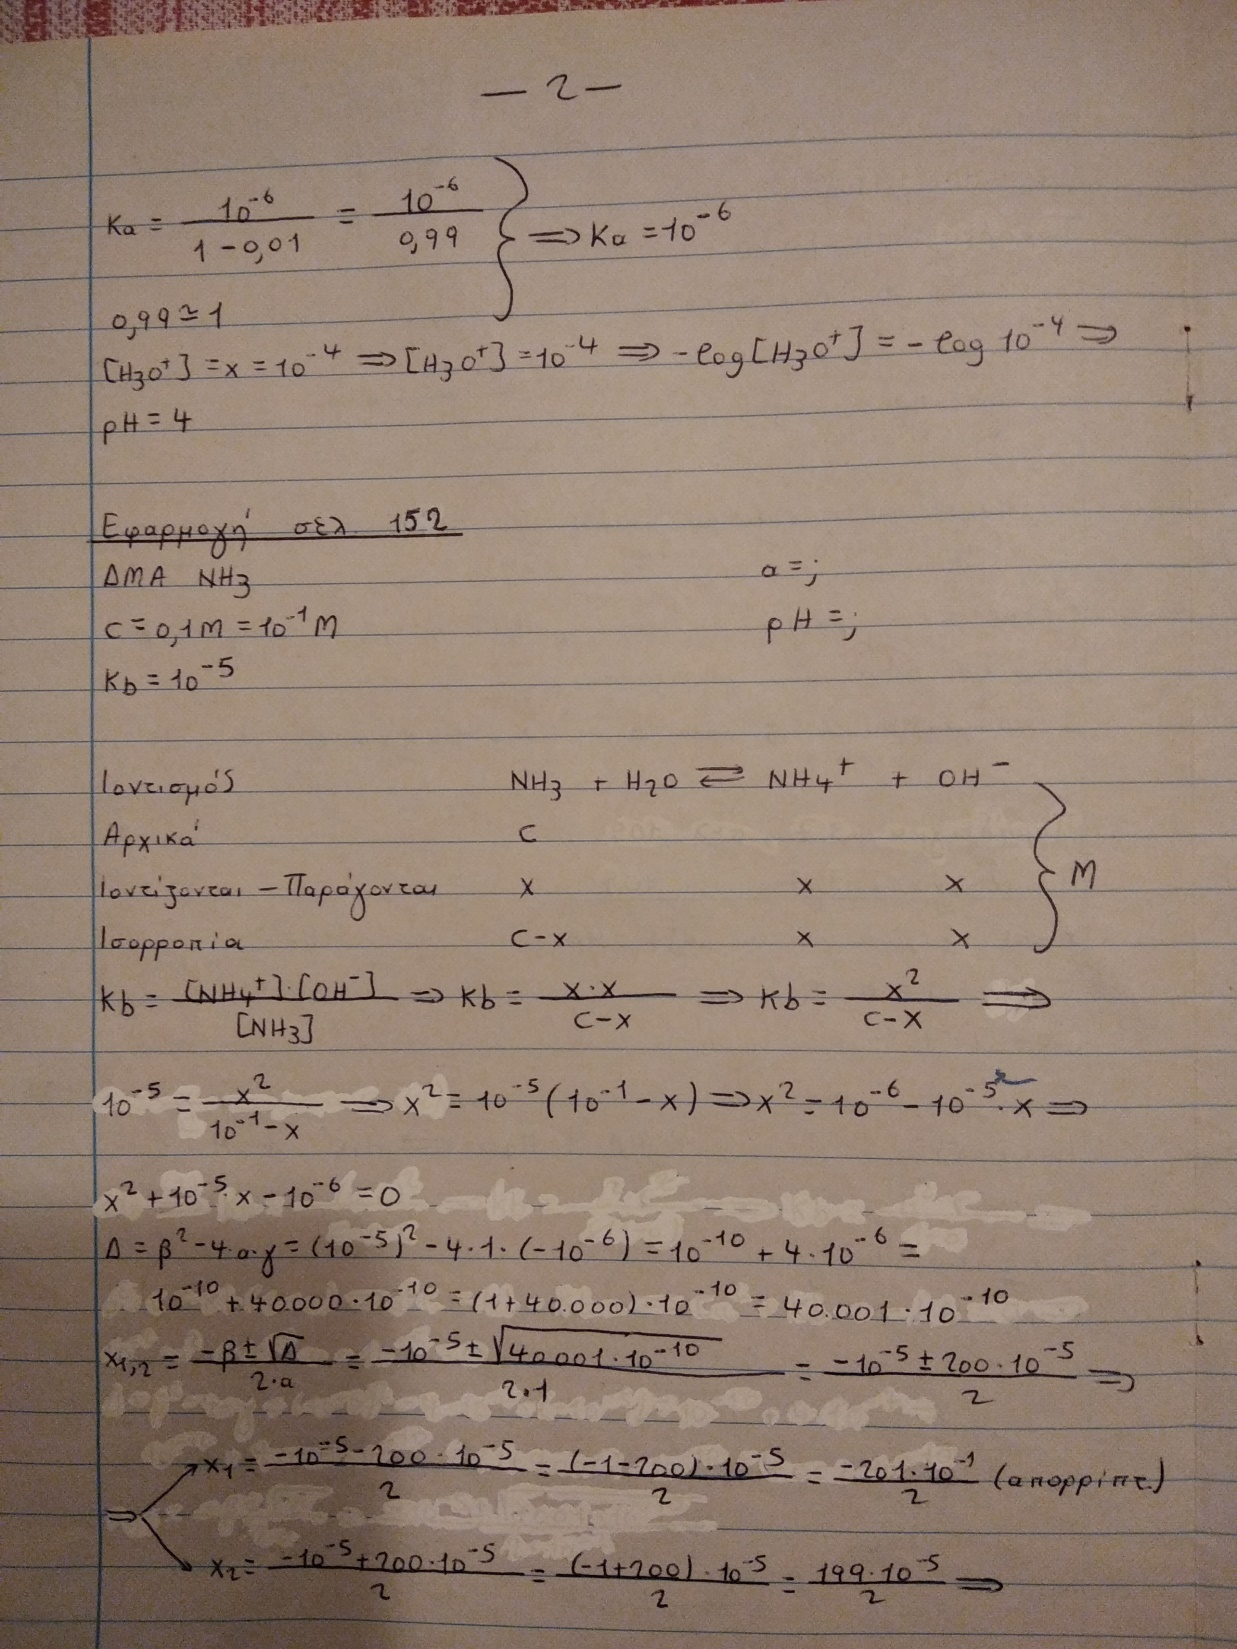 — 2 —
Ka = 10⁻⁶ / (1 - 0,01) = 10⁻⁶ / 0,99 } ⟹ Ka = 10⁻⁶
0,99 ≃ 1
[H₃O⁺] = x = 10⁻⁴ ⟹ [H₃O⁺] = 10⁻⁴ ⟹ -log[H₃O⁺] = -log 10⁻⁴ ⟹
pH = 4
Εφαρμογή σελ. 152
ΔΜΑ NH₃ a = ;
c = 0,1 M = 10⁻¹ M pH = ;
Kb = 10⁻⁵
Ιοντισμός NH₃ + H₂O ⇌ NH₄⁺ + OH⁻
Αρχικά c
Ιοντίζονται - Παράγονται x x x } M
Ισορροπία c-x x x
Kb = [NH₄⁺]·[OH⁻] / [NH₃] ⟹ Kb = x·x / (c-x) ⟹ Kb = x² / (c-x) ⟹
10⁻⁵ = x² / (10⁻¹ - x) ⟹ x² = 10⁻⁵(10⁻¹ - x) ⟹ x² = 10⁻⁶ - 10⁻⁵·x ⟹
x² + 10⁻⁵·x - 10⁻⁶ = 0
Δ = β² - 4·α·γ = (10⁻⁵)² - 4·1·(-10⁻⁶) = 10⁻¹⁰ + 4·10⁻⁶ =
10⁻¹⁰ + 40.000·10⁻¹⁰ = (1 + 40.000)·10⁻¹⁰ = 40.001·10⁻¹⁰
x₁,₂ = (-β ± √Δ) / 2·α = (-10⁻⁵ ± √(40.001·10⁻¹⁰)) / 2·1 = (-10⁻⁵ ± 200·10⁻⁵) / 2 ⟹
x₁ = (-10⁻⁵ - 200·10⁻⁵) / 2 = (-1 - 200)·10⁻⁵ / 2 = -201·10⁻¹ / 2 (απορρίπτ.)
⟹
x₂ = (-10⁻⁵ + 200·10⁻⁵) / 2 = (-1 + 200)·10⁻⁵ / 2 = 199·10⁻⁵ / 2 ⟹